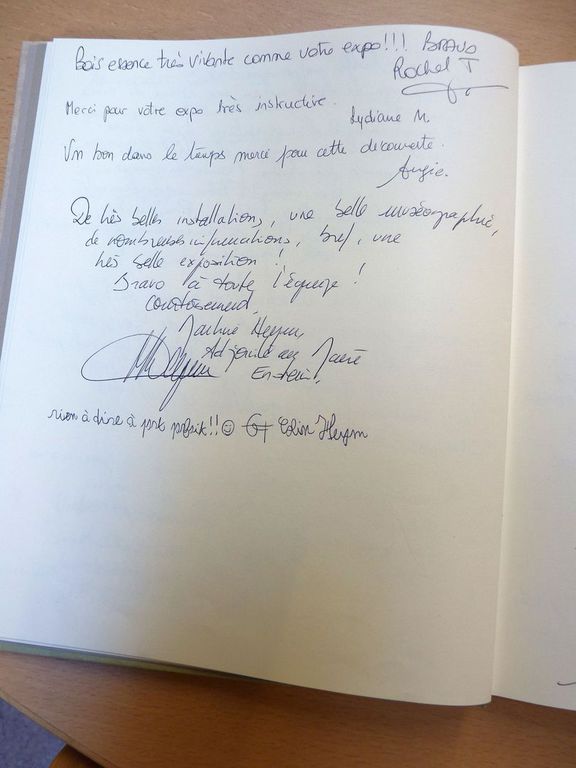 Bois essence très vivante comme votre expo!!! BRAVO
Rachel T
Merci pour votre expo très instructive.
Lydiane M.
Un bon dans le temps merci pour cette découverte.
Angie.
De très belles installations, une belle muséographie,
de nombreuses informations, bref, une
très belle exposition !
Bravo à toute l'équipe !
Courtoisement,
Adjointe au Maire
rien à dire à part parfait!! ☺ Colin